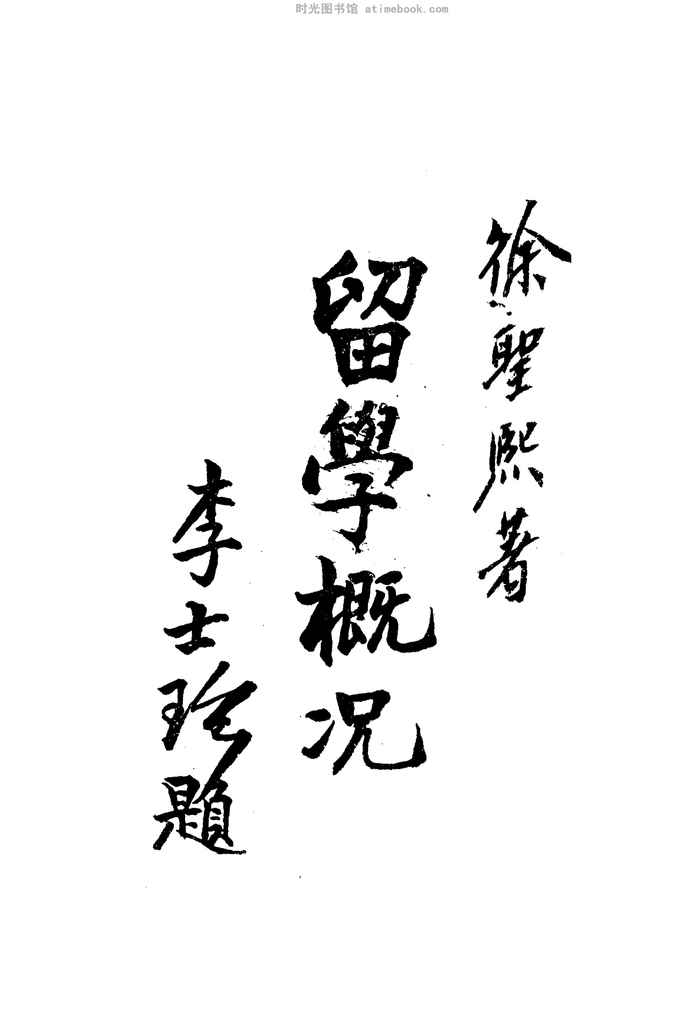 时光图书馆 atimebook.com
徐聖熙著
留學概況
李士珍題